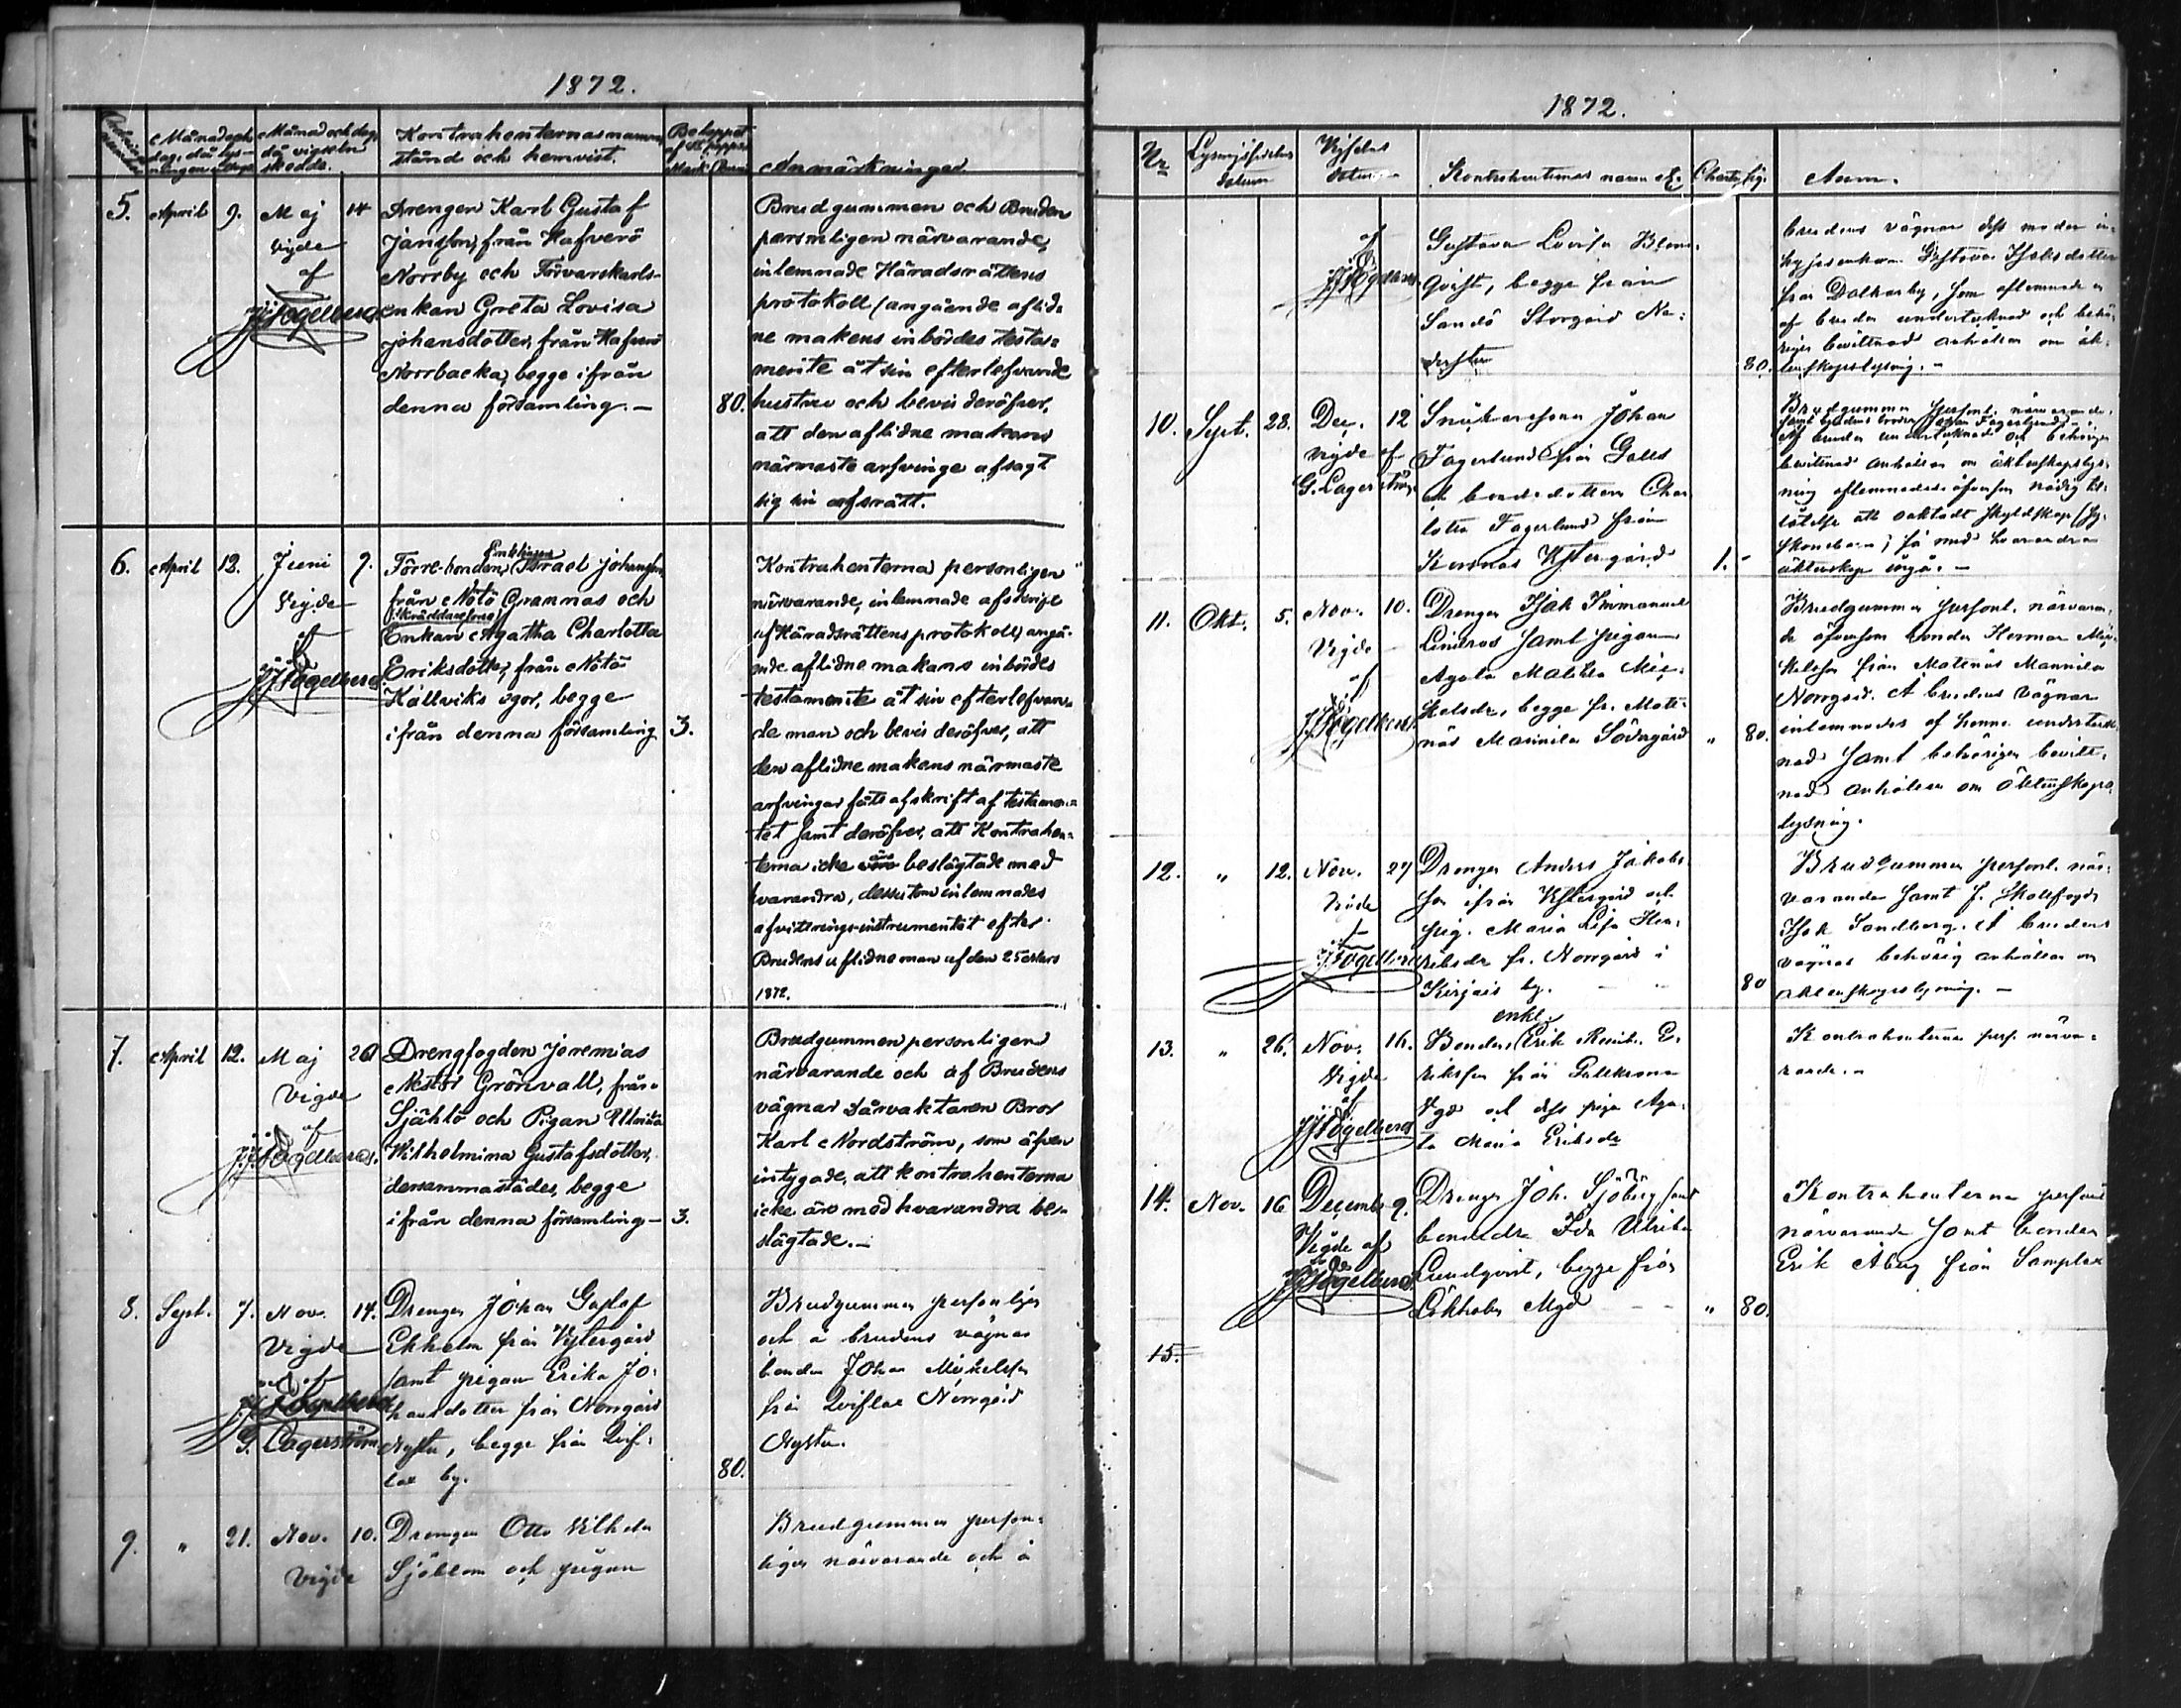 1872.
Månad och dag, då lysningen
Månad och dag då vigseln skedde.
Kontrahenternas namn, stånd och hemvist.
Beloppet af
Mark Penni
Anmärkningar
5. April 9. Maj 14
Vigde
af
Drengen Karl Gustaf
Jansson, från Hafverö
Norrby och Förvarskarls-
enkan Greta Lovisa
Johansdotter, från Hafverö
Norrbacka, begge ifrån
denna församling. — 80.
Brudgummen och Bruden
personligen närvarande,
inlemnade Häradsrättens
protokoll (angående aflid-
ne makens inbördes testa-
mente åt sin efterlefvande
hustru och bevis deröfver,
att den aflidne makens
närmaste arfvinge afsagt
sig sin arfsrätt.
6. April 12. Juni 7.
Vigde
af
Enklingen
Förre-bonden, Israel Johansson,
från Nötö Grannas och
Skräddaresons
Enkan Agatha Charlotta
Eriksdotter, från Nötö
Källviks egor, begge
ifrån denna församling 3.
Kontrahenterna personligen
närvarande, inlemnade afskrift
af Häradsrättens protokoll, angå-
ende aflidne makans inbördes
testamente åt sin efterlefvan-
de man och bevis deröfver, att
den aflidne makens närmaste
arfvingar fått afskrift af testamen-
tet samt deröfver, att Kontrahen-
terna icke äro beslägtade med
hvarandra, dessutom inlemnades
afvittrings-instrumentet efter
Brudens aflidne man af den 25
1872.
7. April 12. Maj 20
Vigde
af
Drengfogden Jeremias
Nestor Grönvall, från
Själlö och Pigan Ulrika
Wilhelmina Gustafsdotter,
dersammastädes, begge
ifrån denna församling — 3.
Brudgummen personligen
närvarande och af Brudens
vägnar dårvaktaren Bror
Karl Nordström, som äfven
intygade, att kontrahenterna
icke äro med hvarandra be-
slägtade. —
8. Sept. 7. Nov. 14.
Vigde
af
G. Lagerström
Drengen Johan Gustaf
Ekholm från Vestergård
samt pigan Erika Jo-
hansdotter från Norrgård
Nystu, begge från Qvif-
lax by. 80.
Brudgummen personligen
och å brudens vägnar
bonden Johan Mickelsson
från Qviflax Norrgård
Nystu.
9. " 21. Nov. 10.
Vigde
Drengen Otto Vilhelm
Sjöblom och pigan
Brudgummen person-
ligen närvarande och å
1872.
Nr
Lysningssedelns datum
Vigselns datum
Kontrahenternas namn etc.
Anm.
af
Gustava Lovisa Blom-
qvist, begge från
Sandö Storgård Ne-
derstu 80.
brudens vägnar dess moder in-
hyseenkan Gustava Isaksdotter
från Dalkarby, som aflemnade en
af bruden undertecknad och behö-
rigen bevittnad anhållan om äk-
tenskapslysning. —
10. Sept. 28. Dec. 12
Vigde af
G. Lagerström
Snickaresonen Johan
Fagerlund från Galts
och bondedottern Char-
lotta Fagerlund från
Korsnäs Vestergård 1. -
Brudgummen personl. närvarande,
samt brudens broder Johan Fagerlund.
Af bruden undertecknad och behörigen
bevittnad anhållan om äktenskapslys-
ning aflemnades äfvensom nådig til-
låtelse att oaktadt skyldskap (Sy-
skonebarn) få med hvarandra
äktenskap ingå. —
11. Okt. 5. Nov. 10.
Vigde
af
Drengen Isak Immanuel
Lindros samt pigan
Agata Matilda Mic-
kelsdr, begge fr. Mate-
näs Mannila Södergård " 80.
Brudgummen personl. närvaran-
de äfvensom bonden Herman Mic-
kelsson från Matenäs Mannila
Norrgård. Å brudens vägnar
inlemnades af henne underteck-
nad samt behörigen bevitt-
nad anhållan om äktenskaps-
lysning.
12. " 12. Nov. 27
Vigde
Drengen Anders Jakobs-
son ifrån Vestergård och
pig. Maria Lisa Hen-
riksdr fr. Norrgård i
Kirjais by. 80
Brudgummen personl. när-
varande samt f. Skallfogde
Isak Sandberg. Å brudens
vägnar behörig anhållan om
äktenskapslysning. —
13. " 26. Nov. 16.
Vigde
af
enkl.
Bonden Erik E-
riksson från
och dess piga Aga-
ta Maria Eriksdr
Kontrahenterna pers. närva-
rande. —
14. Nov. 16 December 9.
Vigde af
Drengen Joh. Sjöberg samt
bondedr Ida Ulrika
Lundqvist, begge från
" 80.
Kontrahenterna personl.
närvarande samt bonden
Erik Åberg från
15.